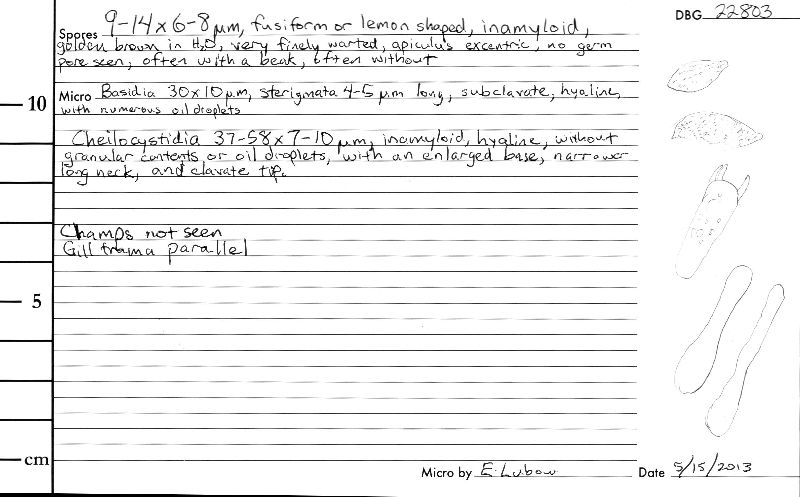 DBG 22803
Spores 9-14 x 6-8 µm, fusiform or lemon shaped, inamyloid,
golden brown in H2O, very finely warted, apiculus excentric, no germ
pore seen, often with a beak, often without
10
Micro Basidia 30x10 µm, sterigmata 4-5 µm long, subclavate, hyaline,
with numerous oil droplets
Cheilocystidia 37-58 x 7-10 µm, inamyloid, hyaline, without
granular contents or oil droplets, with an enlarged base, narrower
long neck, and clavate tip.
Champs not seen
Gill trama parallel
5
cm
Micro by E. Lubow
Date 5/15/2013